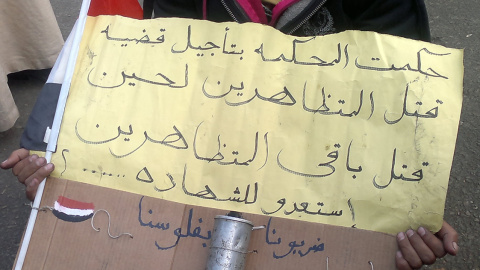 حكمت المحكمه بتأجيل قضيه
قتل المتظاهرين لحين
قتل باقى المتظاهرين
إستعدو للشهاده ......؟
ضربونا بفلوسنا